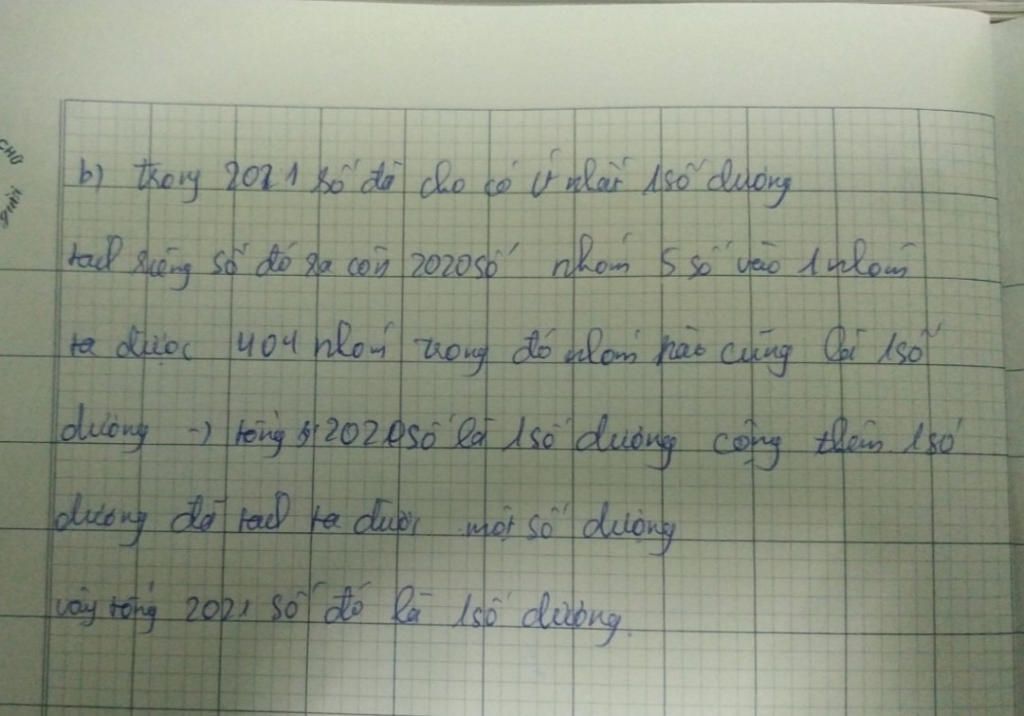 CHO
giải
b) trong 2021 số đã cho có ít nhất 1 số dương
tách riêng số đó ra còn 2020 số nhóm 5 số vào 1 nhóm
ta được 404 nhóm trong đó nhóm nào cũng là 1 số
dương -) tổng 2020 số là 1 số dương cộng thêm 1 số
dương đã tách ta được một số dương
vậy tổng 2021 số đó là 1 số dương.